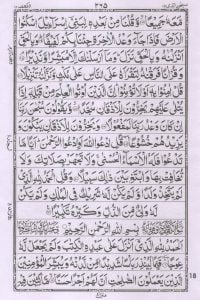 ٢٦٥
فمعه جميعا وقلنا من بعده لبني اسرآءيل اسكنوا
الارض فاذا جآء وعد الاخرة جئنا بكم لفيفا وبالحق
انزلنه وبالحق نزل ومآ ارسلنك الا مبشرا ونذيرا
وقرانا فرقنه لتقراه على الناس على مكث ونزلنه تنزيلا
قل امنوا به او لا تؤمنوا ان الذين اوتوا العلم من قبله اذا
يتلى عليهم يخرون للاذقان سجدا ويقولون سبحن
ربنآ ان كان وعد ربنا لمفعولا ويخرون للاذقان يبكون
ويزيدهم خشوعا قل ادعوا الله او ادعوا الرحمن ايا ما
تدعوا فله الاسمآء الحسنى ولا تجهر بصلاتك ولا
تخافت بها وابتغ بين ذلك سبيلا وقل الحمد لله الذي لم
يتخذ ولدا ولم يكن له شريك في الملك ولم يكن
له ولي من الذل وكبره تكبيرا
بسم الله الرحمن الرحيم
الحمد لله الذي انزل على عبده الكتب ولم يجعل له
عوجا قيما لينذر باسا شديدا من لدنه ويبشر المؤمنين
الذين يعملون الصلحت ان لهم اجرا حسنا ماكثين فيه
18